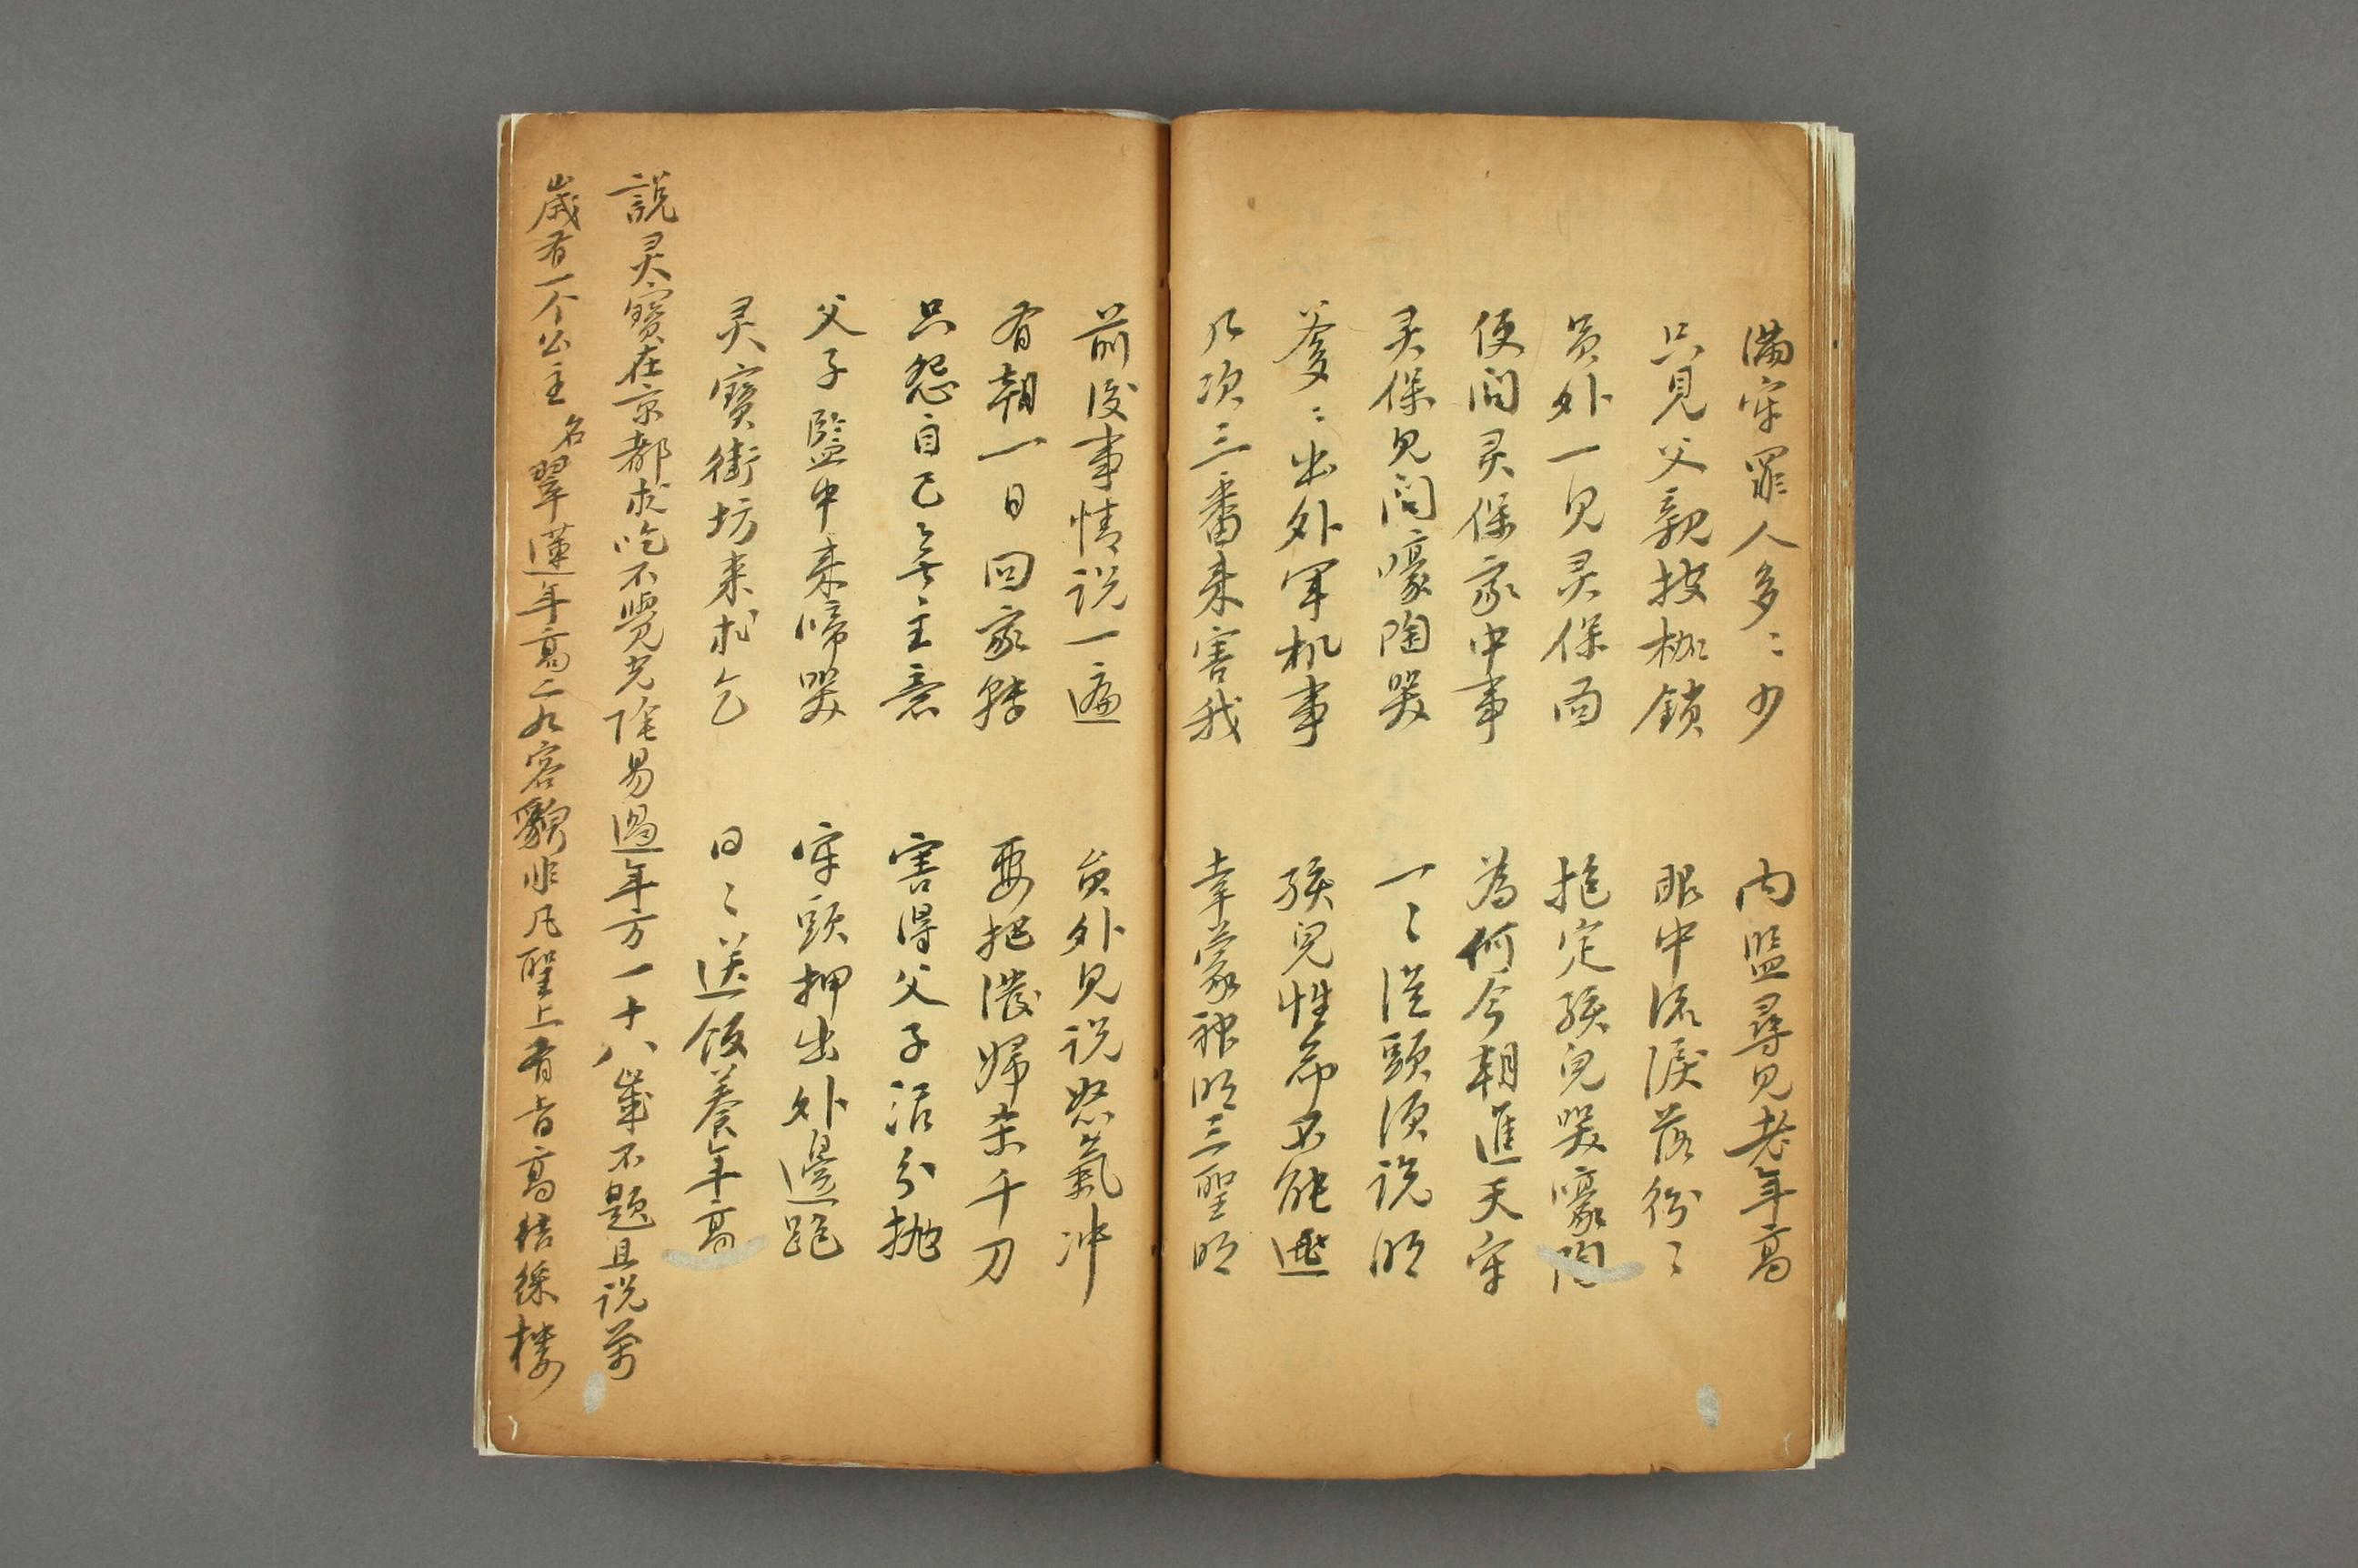 满牢罪人多〻少　内监尋見老年高
只見父親披枷鎖　眼中流淚落紛〻
员外一見灵保面　抱定孩兒哭嚎陶
便問灵保家中事　為何今朝進天牢
灵保見問嚎陶哭　一〻從頭須说明
爹〻出外军机事　孩兒性命不能逃
几次三番来害我　幸蒙神明三聖明
前後事情说一遍　员外見说怒氣冲
有朝一日回家轉　要把潑婦杀千刀
只怨自己無主意　害得父子活分抛
父子監中来啼哭　牢頭押出外邊跑
灵寶街坊来求乞　日〻送饭養年高
說灵寶在京都求吃不覺光陰易過年方一十八歲不题且说萬
歲有一个公主名翠蓮年高二九容貌非凡聖上有旨高结綵楼